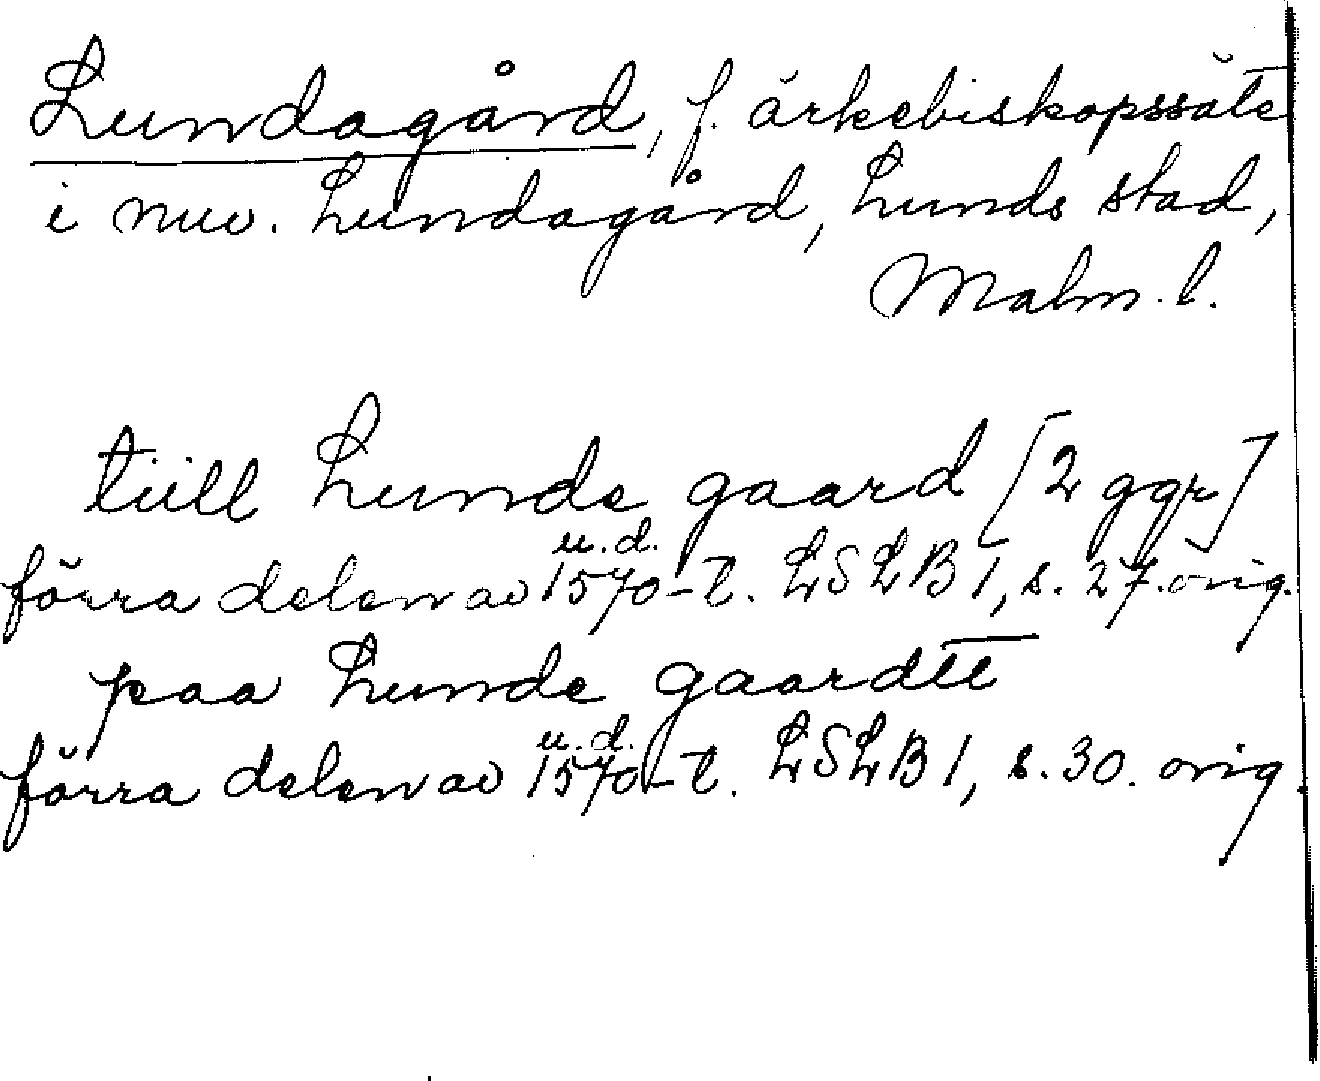 Lundagård, f. ärkebiskopssäte
i nuv. Lundagård, Lunds stad,
Malm. l.
tiill Lunde gaard [2 ggr]
u. d.
förra delen av 1570-t. LSLB I, s. 27. orig.
paa Lunde gaardtt
u. d.
förra delen av 1570-t. LSLB I, s. 30. orig.